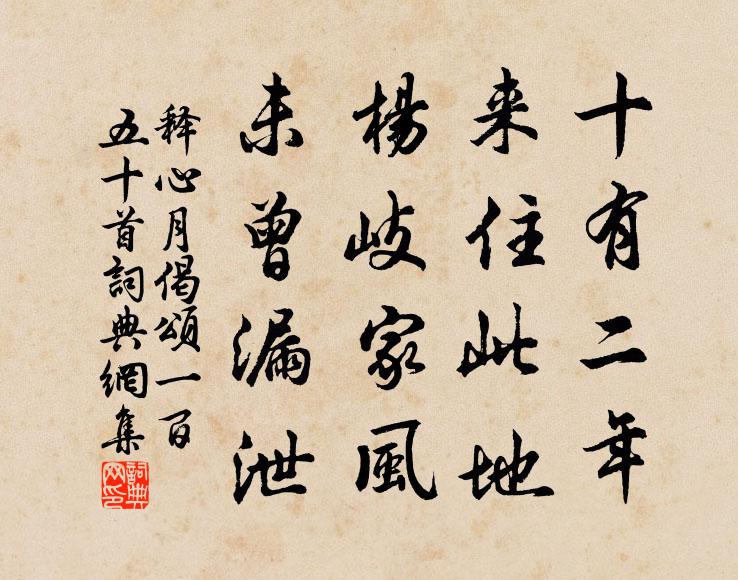 十有二年
来住此地
楊岐家風
未曾漏泄
释心月偈頌一百
五十首詞典網集
詞典网印